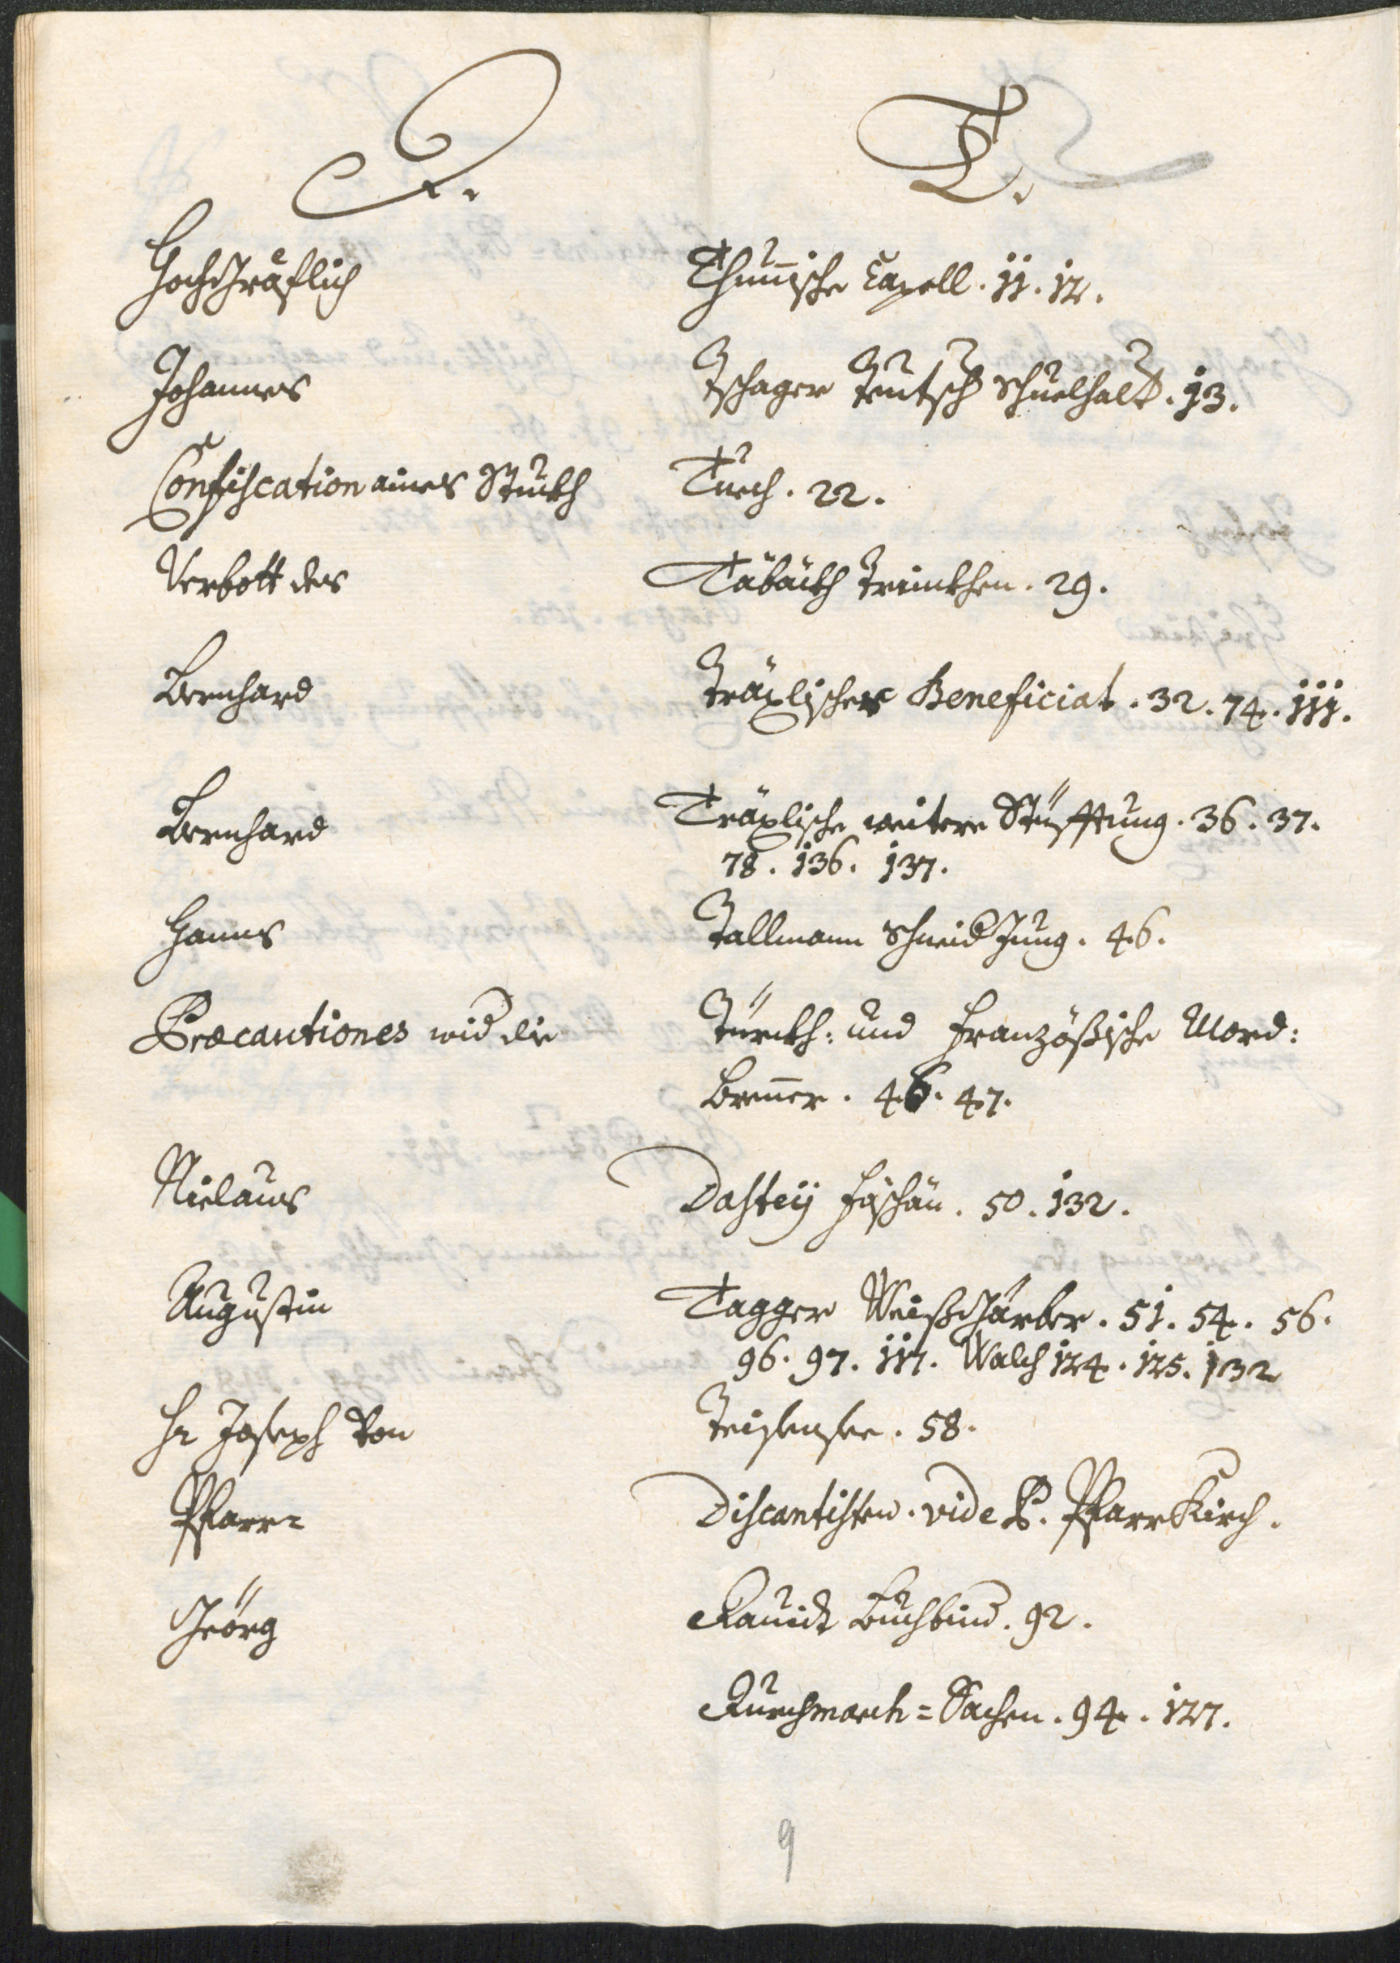 D. T.
Hochgräflich Thunische Capell. 11. 12.
Johannes Tschager Teutsch Schuelhalt. 13.
Confiscation aines Stuckh Tuech. 22.
Verbott des Täbäckh Trinckhen. 29.
Bernhard Träxlischer Beneficiat. 32. 74. 111.
Bernhard Träxlische weitere Stüfftung. 36. 37.
78. 136. 137.
Hanns Tallmann Schneid Jung. 46.
Præcautiones wid die Türckh: und Französische Mord:
Brenner. 46. 47.
Niclaus Dastey 50. 132.
Augustin Tagger Weißgärber. 51. 54. 56.
96. 97. 117. Walch 124. 125. 132
Hr Joseph von Teisensee. 58.
Pfarr= Discantisten. vide P. Pfarrkirch.
Geörg Dauidt Buechbind. 92.
Durchmarch=Sachen. 94. 127.
9